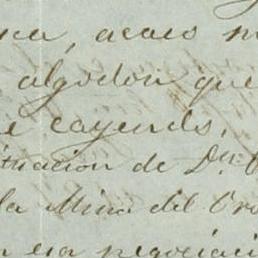 acaso
algodon que
cayendo,
tuacion de Dn.
la Mina del Oro
en esa negociaci